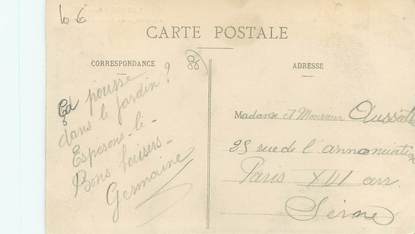 CARTE POSTALE
CORRESPONDANCE
Ça pousse
dans le jardin?
Esperons-le-
Bons baisers-
Germaine
ADRESSE
Madame et Monsieur
25 rue de l'annonciation
Paris XVI arr.
Seine